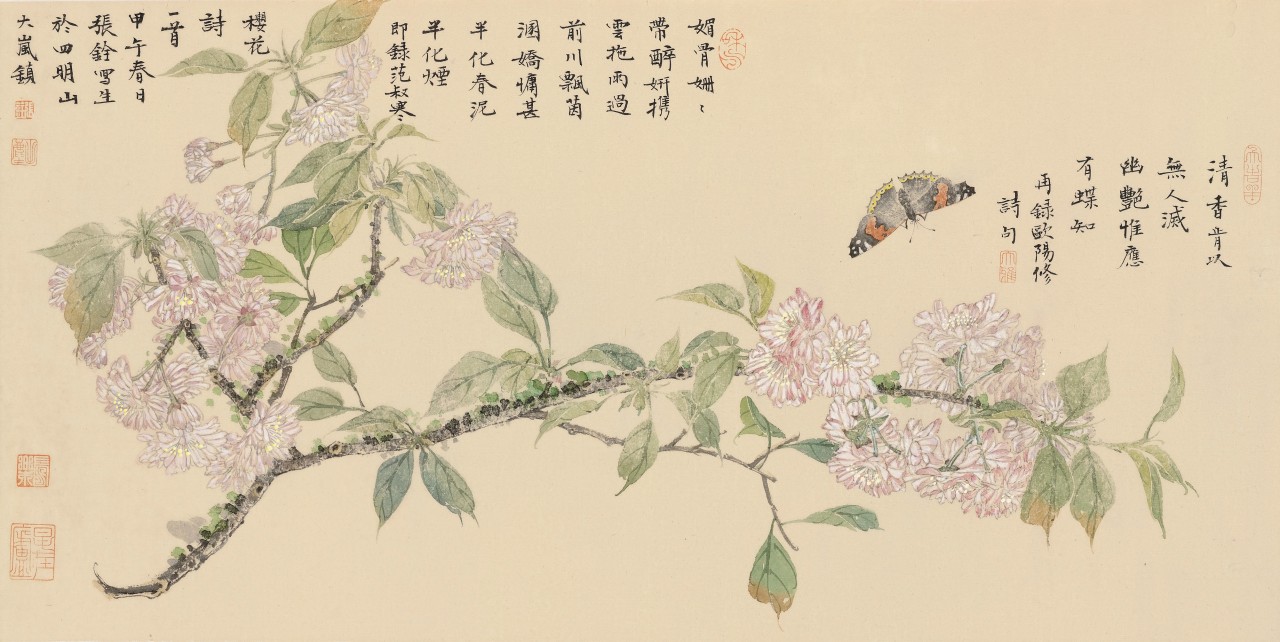 清香肯以
無人減
幽艷惟應
有蝶知
再録歐陽修
詩句
媚骨姍〻
帶醉妍攜
雲拖雨過
前川飄茵
溷嬌慵甚
半化春泥
半化煙
即録范叔寒
櫻花
詩
一首
甲午春日
張銓寫生
於四明山
大嵐鎮